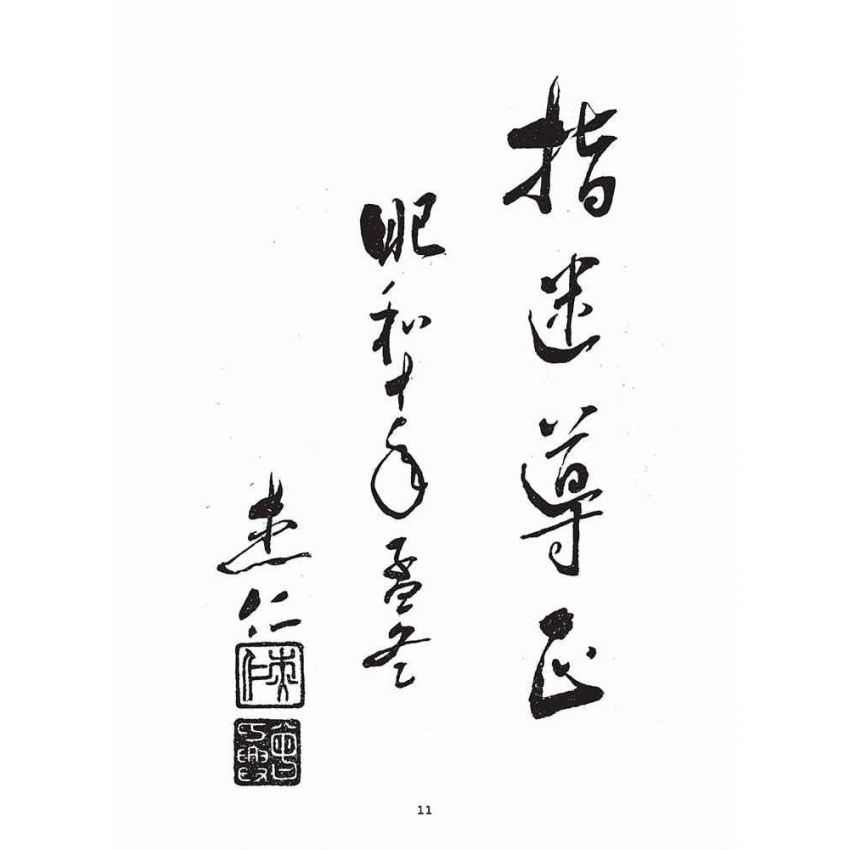 指迷導正
昭和十年孟冬
仁
11